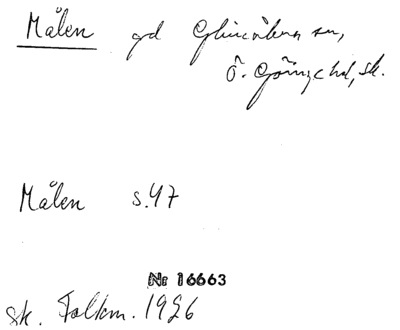 Målen gd Glimåkra sn,
Ö. Göinge hd, sk.
Målen s.47
Nr 16663
sk. Folkm. 1926